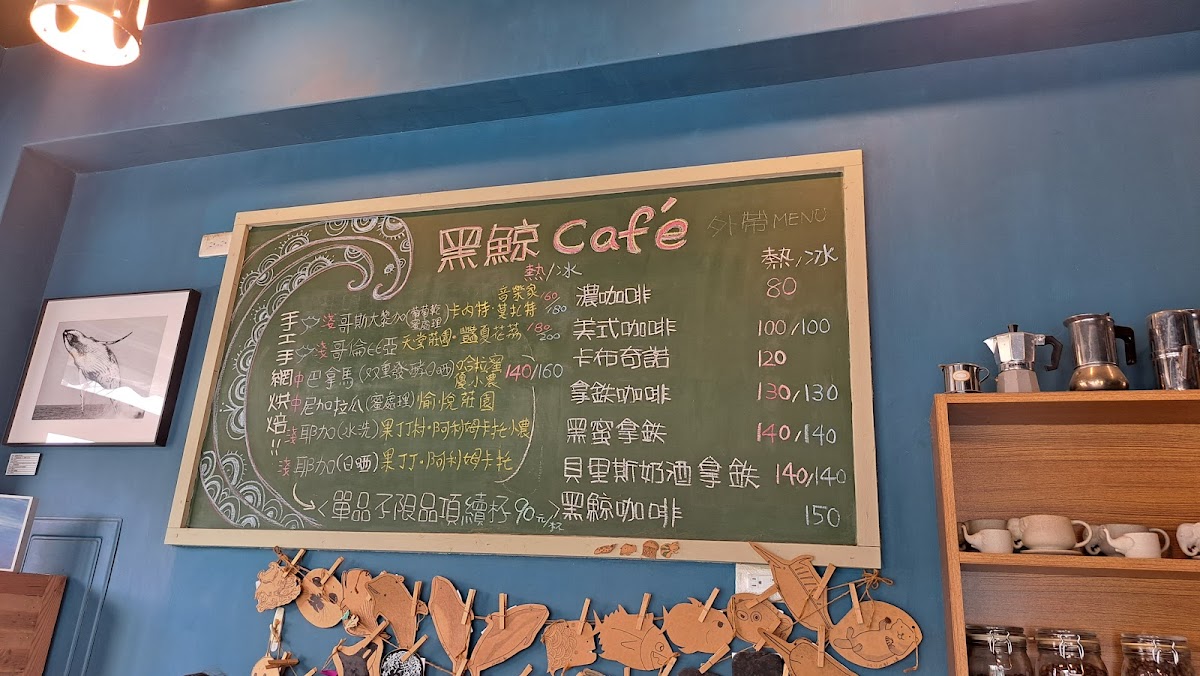 黑鯨 Café
外帶 MENU
熱/冰
熱/冰
手工手網烘焙!!
淺 哥斯大黎加(葡萄乾蜜處理)卡內特·音樂家莫札特 160/180
淺 哥倫比亞 天堂莊園·豔夏花荔 180/200
中 巴拿馬(双重發酵日晒)哈拉窪優小農 140/160
中 尼加拉瓜(蜜處理)愉悅莊園
淺 耶加(水洗)果丁丁村·阿利姆卡托小農
淺 耶加(日晒)果丁丁·阿利姆卡托
<單品不限品項續杯90元/杯>
濃咖啡 80
美式咖啡 100/100
卡布奇諾 120
拿鉄咖啡 130/130
黑蜜拿鉄 140/140
貝里斯奶酒拿鉄 140/140
黑鯨咖啡 150